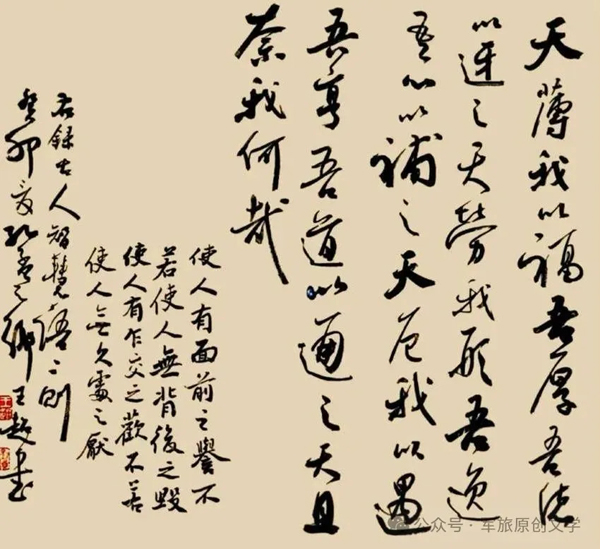 天薄我以福吾厚吾德
以迓之天勞我形吾逸
吾心以補之天厄我以遇
吾亨吾道以通之天且
奈我何哉
使人有面前之譽不
若使人無背後之毀
使人有乍交之歡不若
使人無久處之厭
右錄古人智慧語二則
癸卯夏孔孟之鄉王超書
公众号·军旅原创文学